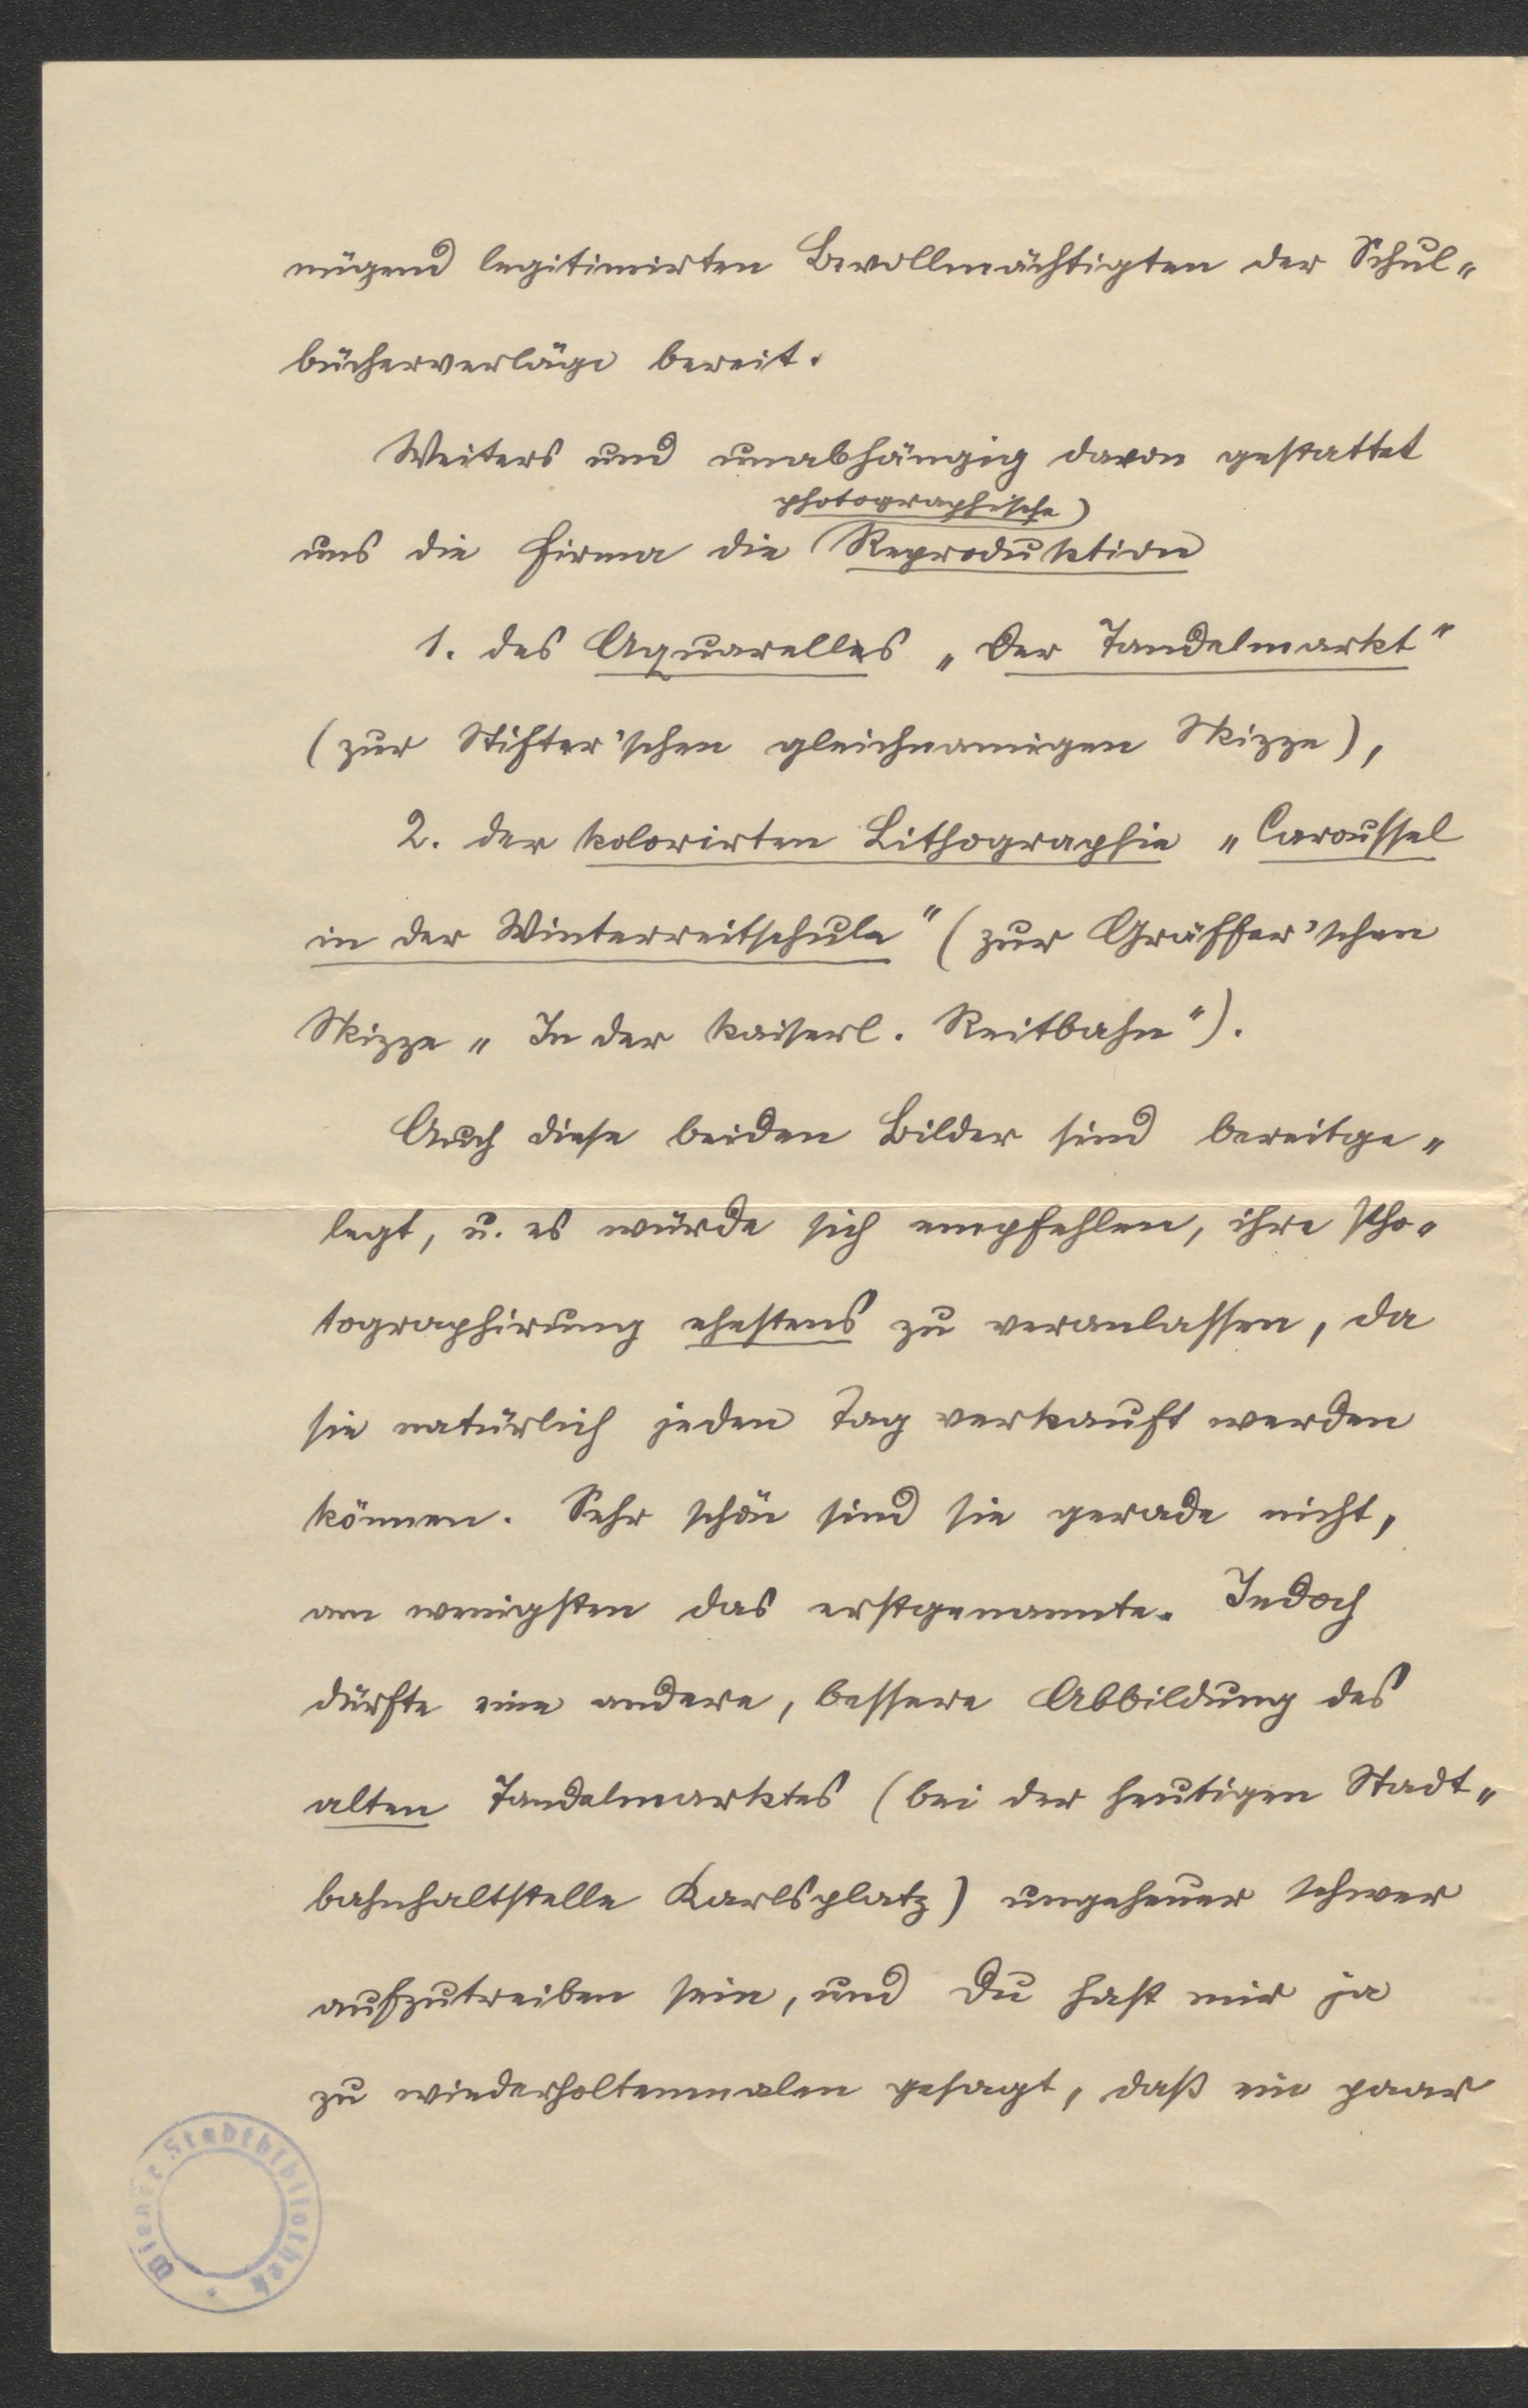 nügend legitimirten Bevollmächtigten der Schul-
bücherverläge bereit.
Weiters und unabhängig davon gestattet
photographische
uns die Firma die Reproduktion
1. des Aquarelles „Der Tandelmarkt“
(zur Stifter'schen gleichnamigen Skizze),
2. der kolorirten Lithographie „Caroussel
in der Winterreitschule“ (zur Gräffer'schen
Skizze „In der kaiserl. Reitbahn“).
Auch diese beiden Bilder sind bereitge-
legt, u. es würde sich empfehlen, ihre Pho-
tographirung ehestens zu veranlassen, da
sie natürlich jeden Tag verkauft werden
können. Sehr schön sind sie gerade nicht,
am wenigsten das erstgenannte. Jedoch
dürfte eine andere, bessere Abbildung des
alten Tandelmarktes (bei der heutigen Stadt-
bahnhaltstelle Karlsplatz) ungeheuer schwer
aufzutreiben sein, und Du hast mir ja
zu wiederholtenmalen gesagt, daß ein paar
Wiener Stadtbibliothek